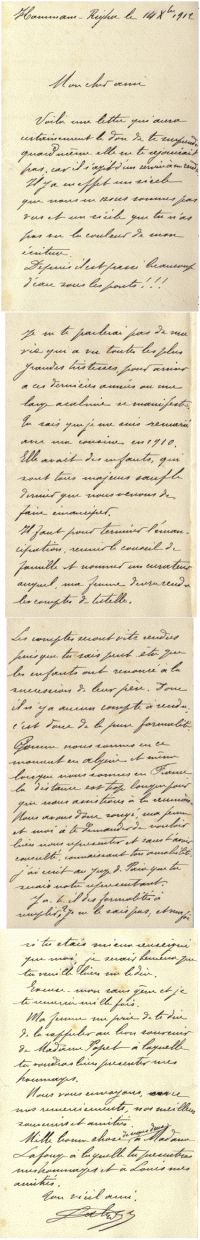 Hammam-Righa le 14 Xbre 1912
Mon cher ami
Voilà une lettre qui aura
certainement le don de te surprendre
quand même elle ne te réjouirait
pas, car il s'agit d'un service à me rendre
Il y a en effet un siècle
que nous ne nous sommes pas
vus et un siècle que tu n'as
pas vu la couleur de mon
écriture.
Depuis il est passé beaucoup
d'eau sous les ponts !!!
Je ne te parlerai pas de ma
vie qui a vu toutes les plus
grandes tristesses pour arriver
à ces dernières années ou une
large accalmie se manifeste.
Tu sais que je me suis remarié
avec ma cousine en 1910.
Elle avait des enfants, qui
sont tous majeurs sauf le
dernier que nous venons de
faire émanciper.
Il faut pour terminer l'éman-
cipation, réunir le conseil de
famille et nommer un curateur
auquel ma femme devra rendre
les comptes de tutelle.
Les comptes seront vite rendus
puisque tu sais peut être que
les enfants ont renoncé à la
succession de leur père. Donc
il n'y a aucun compte à rendre,
c'est donc de la pure formalité.
Comme nous sommes en ce
moment en algérie et même
lorsque nous sommes en France
la distance est trop longue pour
que nous assistions à la réunion.
Nous avons donc songé, ma femme
et moi à te demander de vouloir
bien nous représenter et sans t'avoir
consulté, connaissant ton amabilité
j'ai écrit au juge de Paix que tu
serais notre représentant.
Y a-t-il des formalités à
remplir? Je ne le sais pas, et
si tu étais mieux renseigné
que moi, je serais heureux que
tu veuilles bien me le dire.
Excuse mon sans gêne et je
te remercie mille fois.
Ma femme me prie de te dire
de la rappeler au bon souvenir
de Madame à laquelle
tu voudras bien présenter mes
hommages.
Nous vous envoyons avec
nos remerciements, nos meilleurs
souvenirs et amitiés
Mille bonnes choses de nous deux à Madame
à laquelle tu présenteras
mes hommages et à Louis mes
amitiés.
Ton vieil ami.